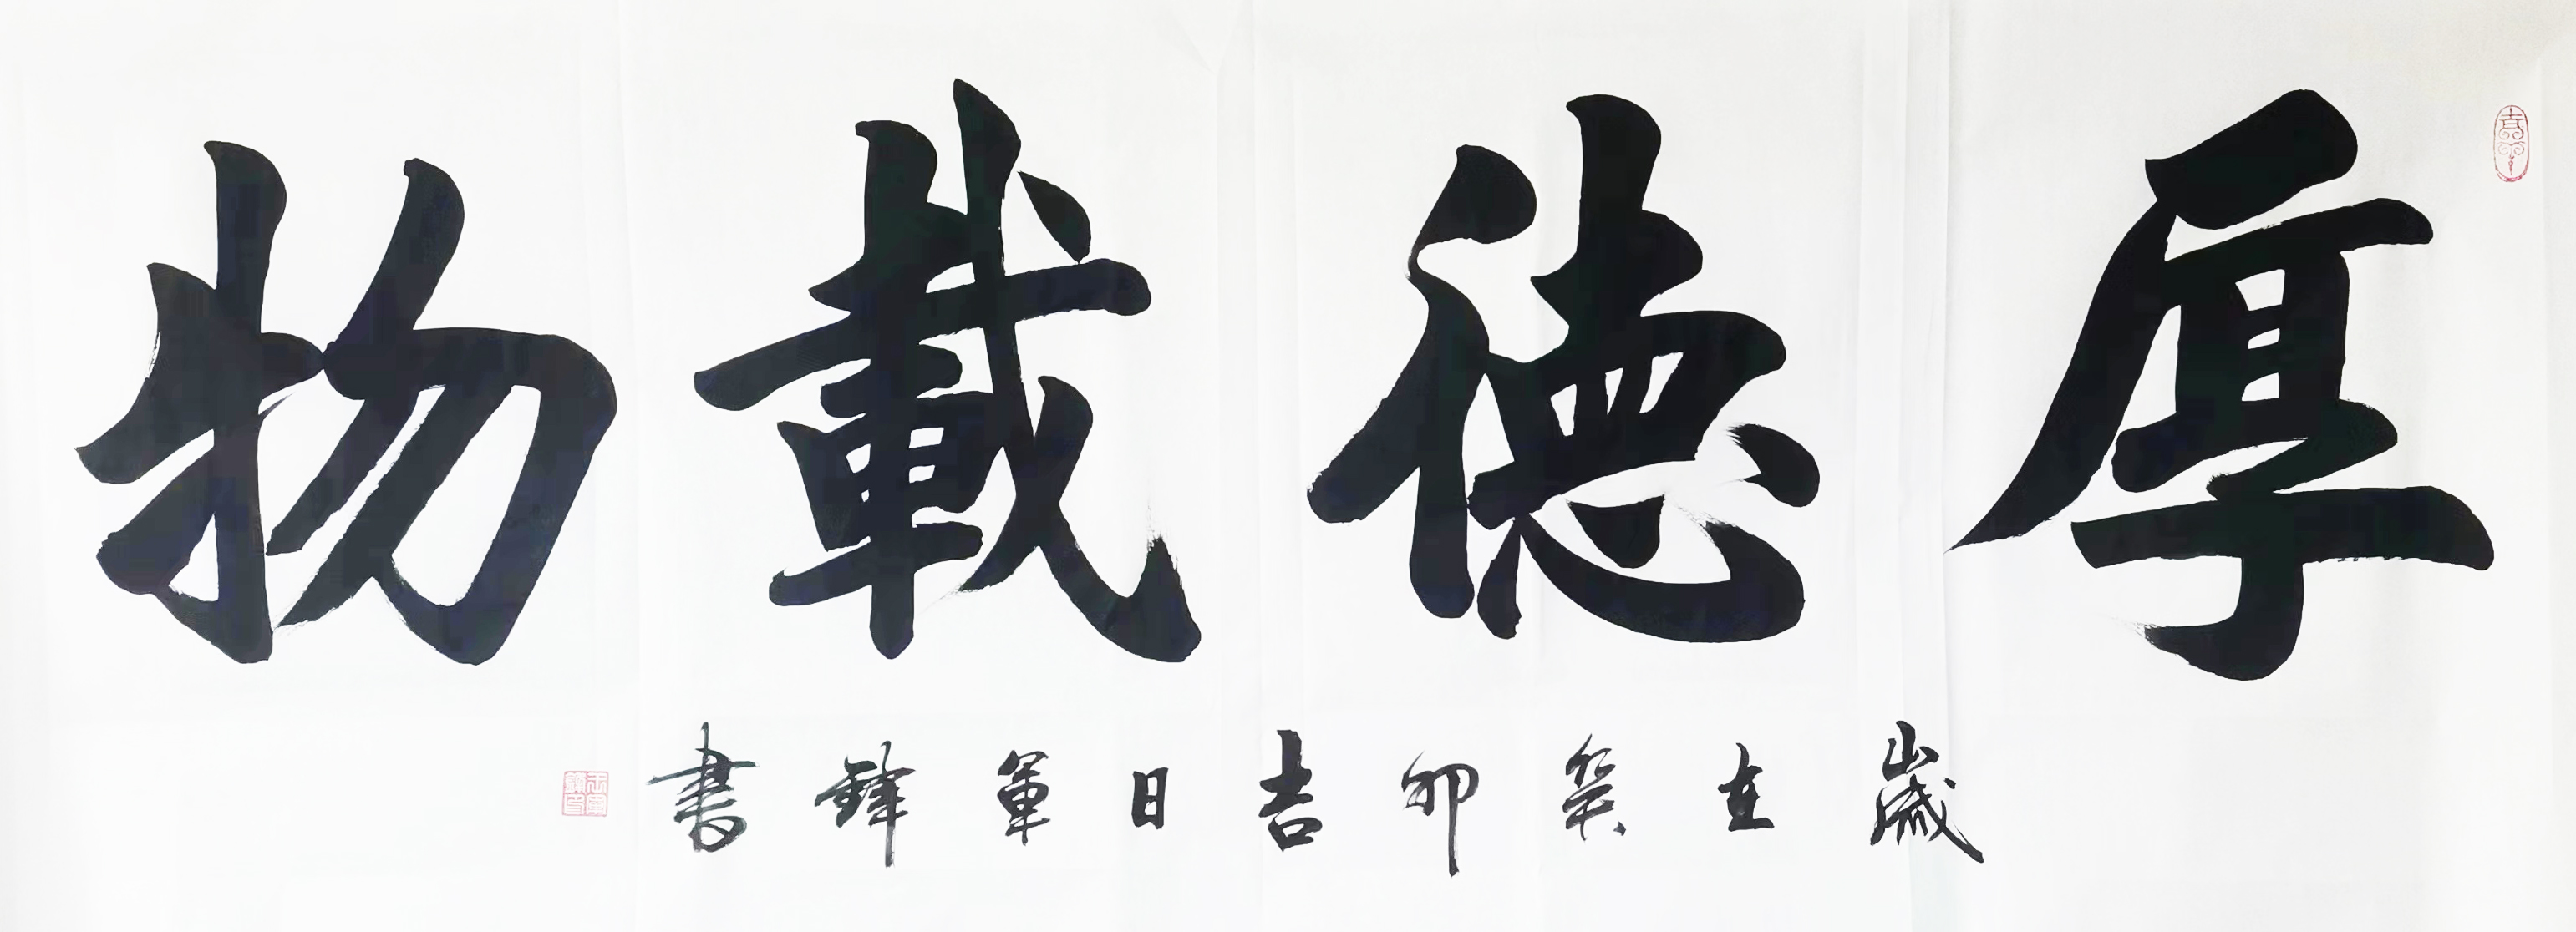 厚德載物
歲在癸卯吉日軍鋒書